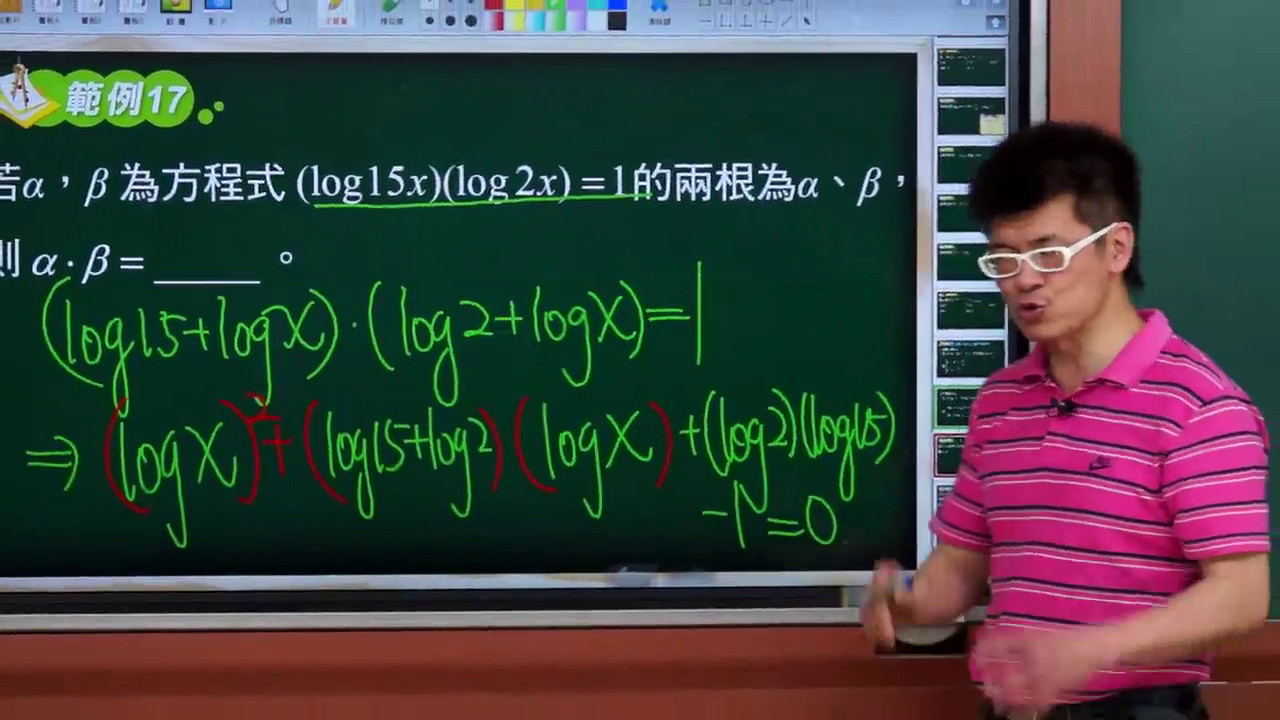 範例17
若α，β 為方程式 (log15x)(log2x) = 1的兩根為α、β，
則 α · β = ______ 。
(log15+logx)·(log2+logx)=1
⇒ (logx)²+(log15+log2)(logx)+(log2)(log15)
-1=0